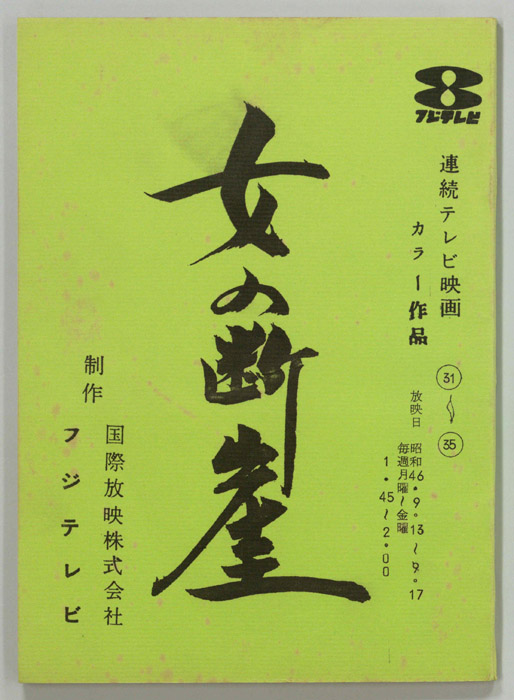 フジテレビ
連続テレビ映画
カラー作品
㉛〜㉟
放映日
昭和46・9・13〜9・17
毎週月曜〜金曜
1・45〜2・00
女の断崖
制作
国際放映株式会社
フジテレビ